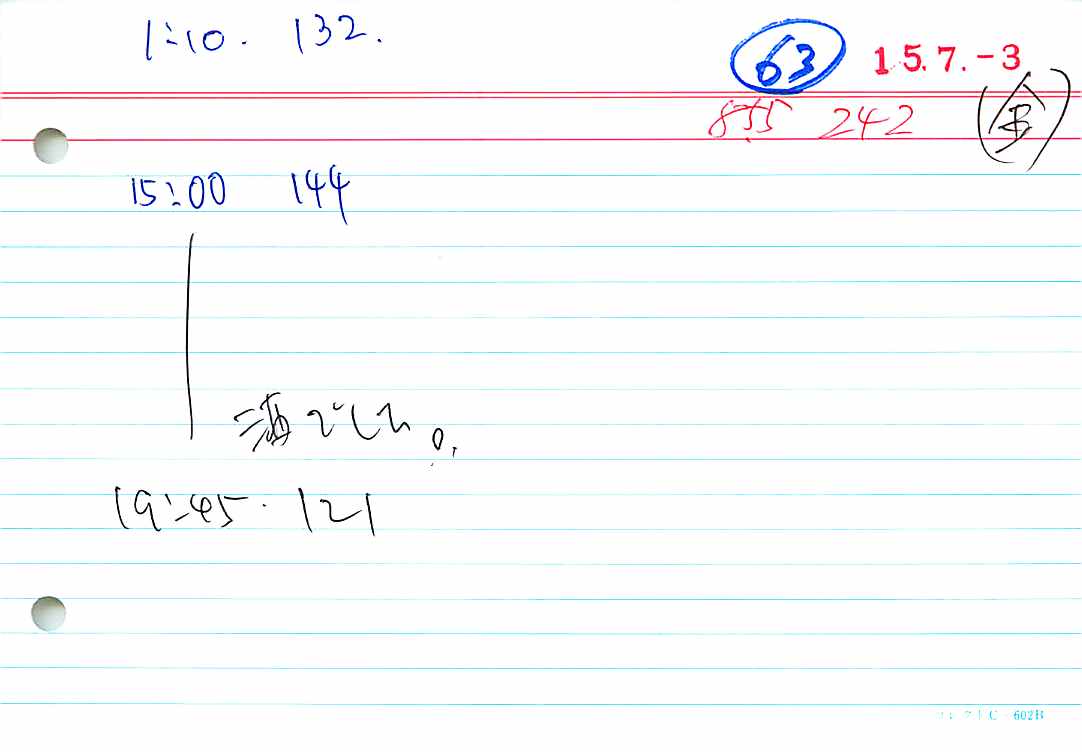 1:10. 132.
63 15.7.-3
855 242 (金)
15:00 144
酒
19:45. 121
C 602B